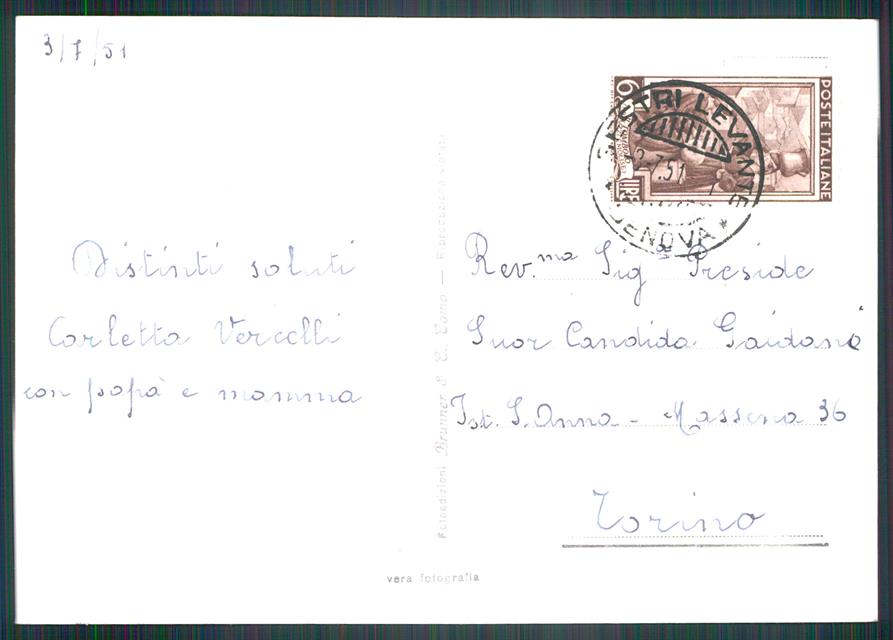 3/7/51
Distinti saluti
Carletta Vercelli
con papà e mamma
Fotoedizioni Brunner & C. Como — Riproduzione vietata
vera fotografia
POSTE ITALIANE
6
LIRE
SESTRI LEVANTE
2.7.51
GENOVA
Rev.ma Sig.a Preside
Suor Candida Gaidano
Ist. S. Anna - Massena 36
Torino